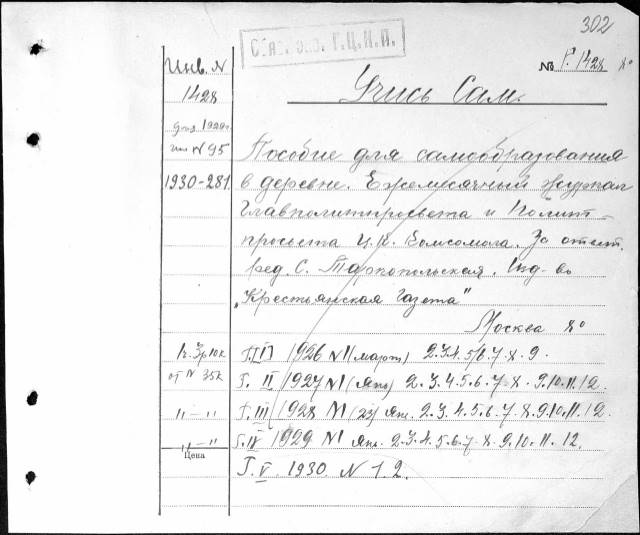 302
Инв. N
1428
1929г.
N 95
1930-281
№ Р. 1428 8°
Учись Сам.
Пособие для самообразования
в деревне. Ежемесячный журнал
Главполитпросвета и Полит-
просвета Ц.К. Комсомола. За ответ.
ред. С. Тарнопольская. Изд-во
„Крестьянская Газета"
Москва 8°
Г. I) 1926 N 1 (март) 2.3.4.5/6.7.8.9.
Г. II 1927 N 1 (янв) 2.3.4.5.6.7.8.9.10.11.12.
от N 35к
Г. III 1928 N 1 (23) янв. 2.3.4.5.6.7.8.9.10.11.12.
„ — „
Г. IV 1929 N 1 янв. 2.3.4.5.6.7.8.9.10.11.12.
„ — „
Цена
Г. V. 1930. N 1.2.